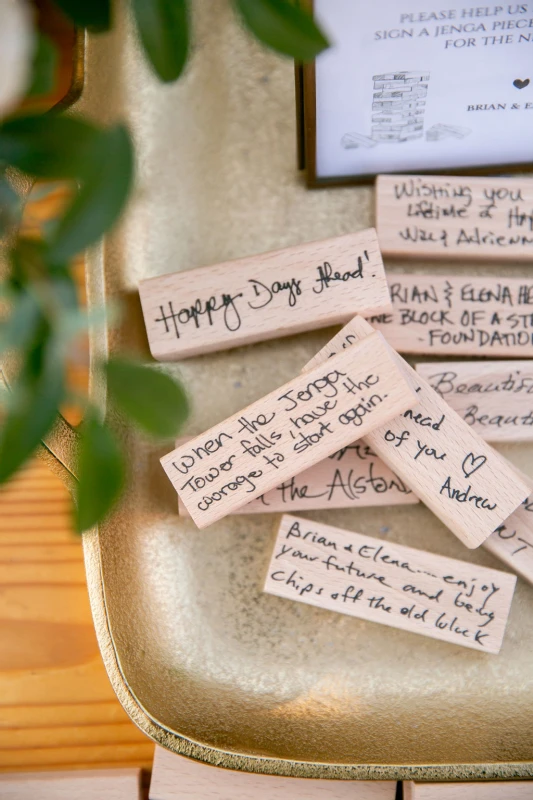 PLEASE HELP US
SIGN A JENGA PIECE
FOR THE
BRIAN &
Wishing you
Lifetime of
& Adrienn
Happy Days Ahead!
BRIAN & ELENA
BLOCK OF A
- FOUNDATION
When the Jenga
Tower falls have the
courage to start again.
Beautiful
of you ♡
Andrew
the Alston
Brian & Elena.... enjoy
your future and being
chips off the old block